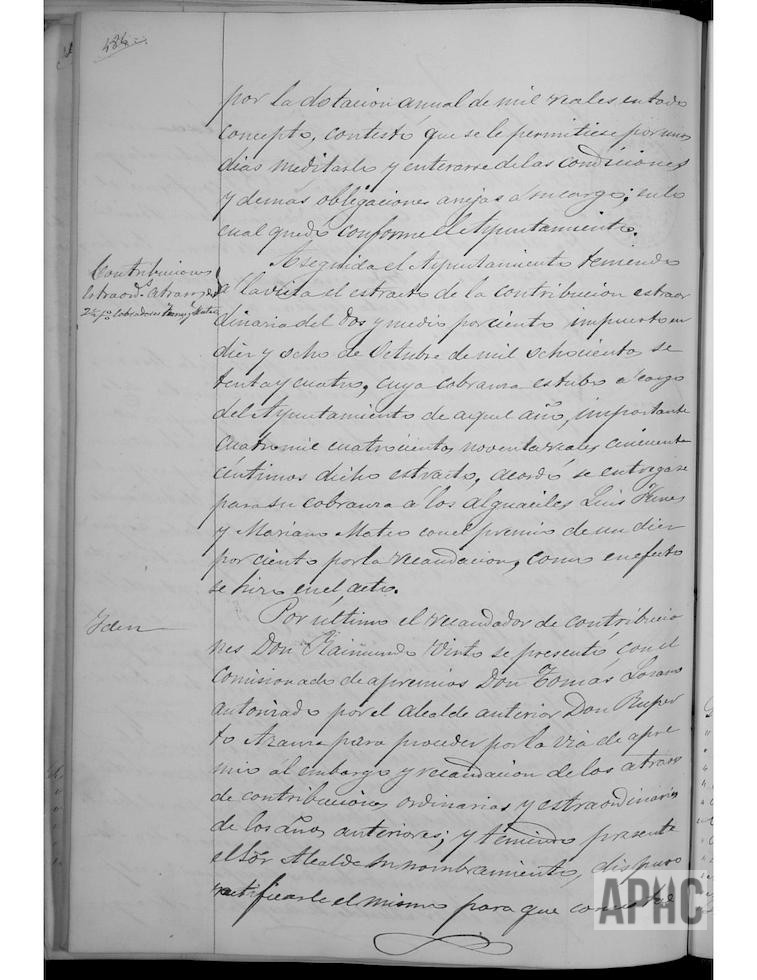 484
por la dotacion anual de mil reales en todo
concepto, contestó que se le permitiese por unos
dias meditarlo y enterarse de las condiciones
y demás obligaciones anejas á su cargo; en lo
cual quedó conforme el Ayuntamiento.
Contribuciones
estraord.s atrasos del
2½ p% cobradores
A seguida el Ayuntamiento teniendo
á la vista el estracto de la contribucion estraor
dinaria del dos y medio por ciento impuesto en
diez y ocho de Octubre de mil ochocientos se
tenta y cuatro, cuya cobranza estubo á cargo
del Ayuntamiento de aquel año, importante
cuatro mil cuatrocientos noventa reales cincuenta
céntimos dicho estracto, acordó se entregase
para su cobranza á los alguaciles Luis
y Mariano Mateo con el premio de un diez
por ciento por la recaudacion, como en efecto
se hizo en el acto.
Idem
Por último el recaudador de contribucio
nes Don Raimundo Pinto se presentó con el
comisionado de apremios Don Tomás Lozano
autorizado por el alcalde anterior Don Ruper
to Azaura para proceder por la via de apre
mio al embargo y recaudacion de los atrasos
de contribuciones ordinarias y estraordinarias
de los años anteriores; y teniendo presente
el Sór Alcalde su nombramiento, dispuso
ratificarle el mismo para que
APHC